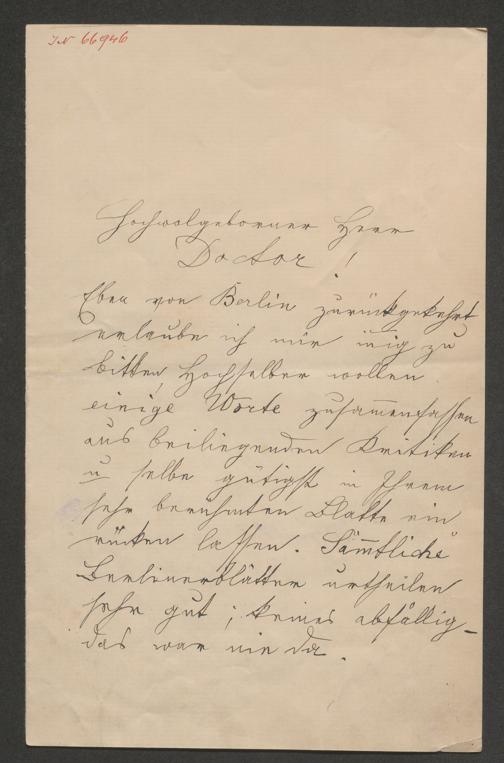 IN 66946
Hochwolgeborner Herr
Doctor!
Eben von Berlin zurückgekehrt
erlaube ich mir innig zu
bitten, Hochselber wollen
einige Worte zusammenfassen
aus beiliegenden Kritiken
u selbe gütigst in Ihrem
sehr berühmten Blatte ein
rücken lassen. Sämmtliche
Berlinerblätter urtheilen
sehr gut; keines abfällig_
das war nie da.